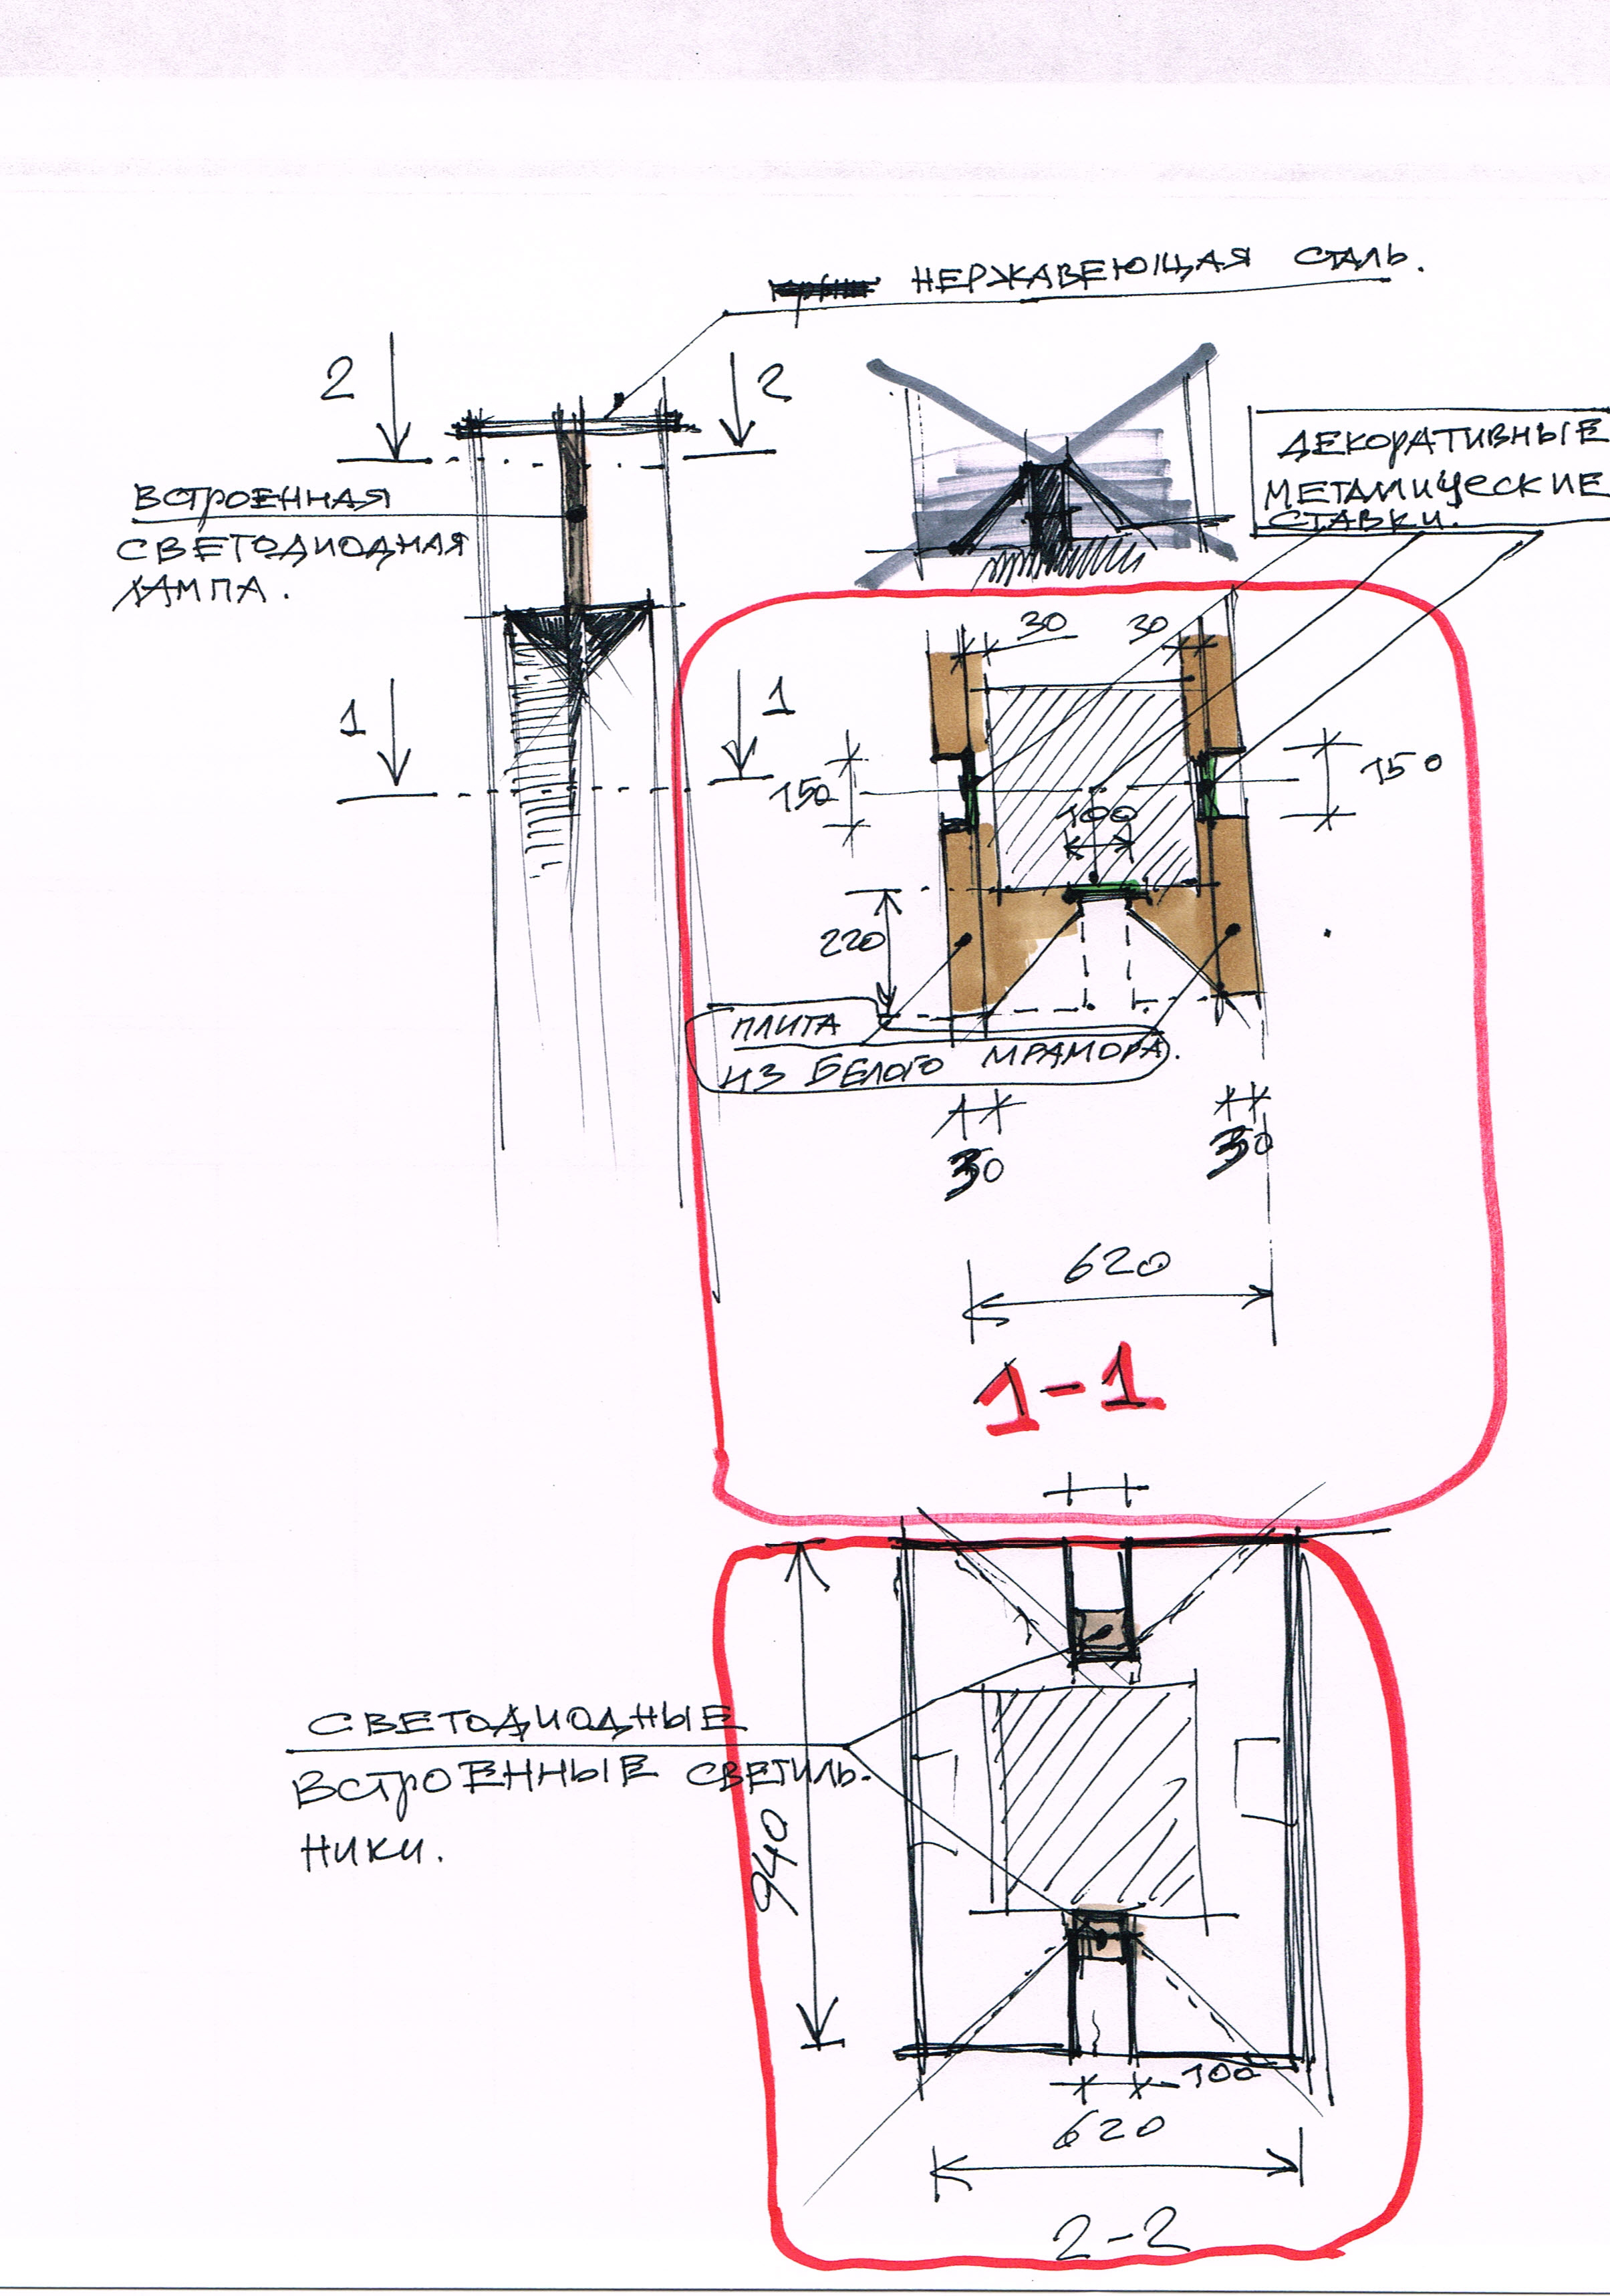 НЕРЖАВЕЮЩАЯ СТАЛЬ.
2
2
ДЕКОРАТИВНЫЕ
МЕТАЛИЧЕСКИЕ
СТАВКИ.
ВСТРОЕННАЯ
СВЕТОДИОДНАЯ
ЛАМПА.
30
30
1
1
150
150
100
220
ПЛИТА
ИЗ БЕЛОГО МРАМОРА.
30
30
620
1-1
СВЕТОДИОДНЫЕ
ВСТРОЕННЫЕ СВЕТИЛЬ-
НИКИ.
940
100
620
2-2